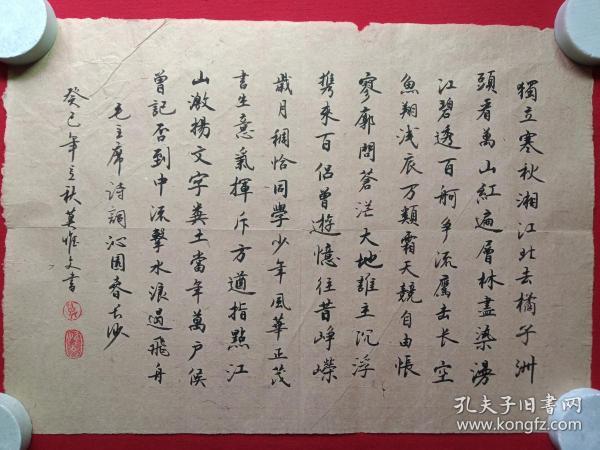 獨立寒秋湘江北去橘子洲
頭看萬山紅遍層林盡染漫
江碧透百舸争流鷹击长空
魚翔浅底万類霜天競自由悵
寥廓問蒼茫大地誰主沉浮
携来百侣曾遊憶往昔崢嶸
歲月稠恰同學少年風華正茂
書生意氣揮斥方遒指點江
山激揚文字粪土當年萬户侯
曾記否到中流擊水浪遏飛舟
毛主席诗詞沁园春长沙
癸巳年立秋莫惟文書
孔夫子旧书网
www.kongfz.com